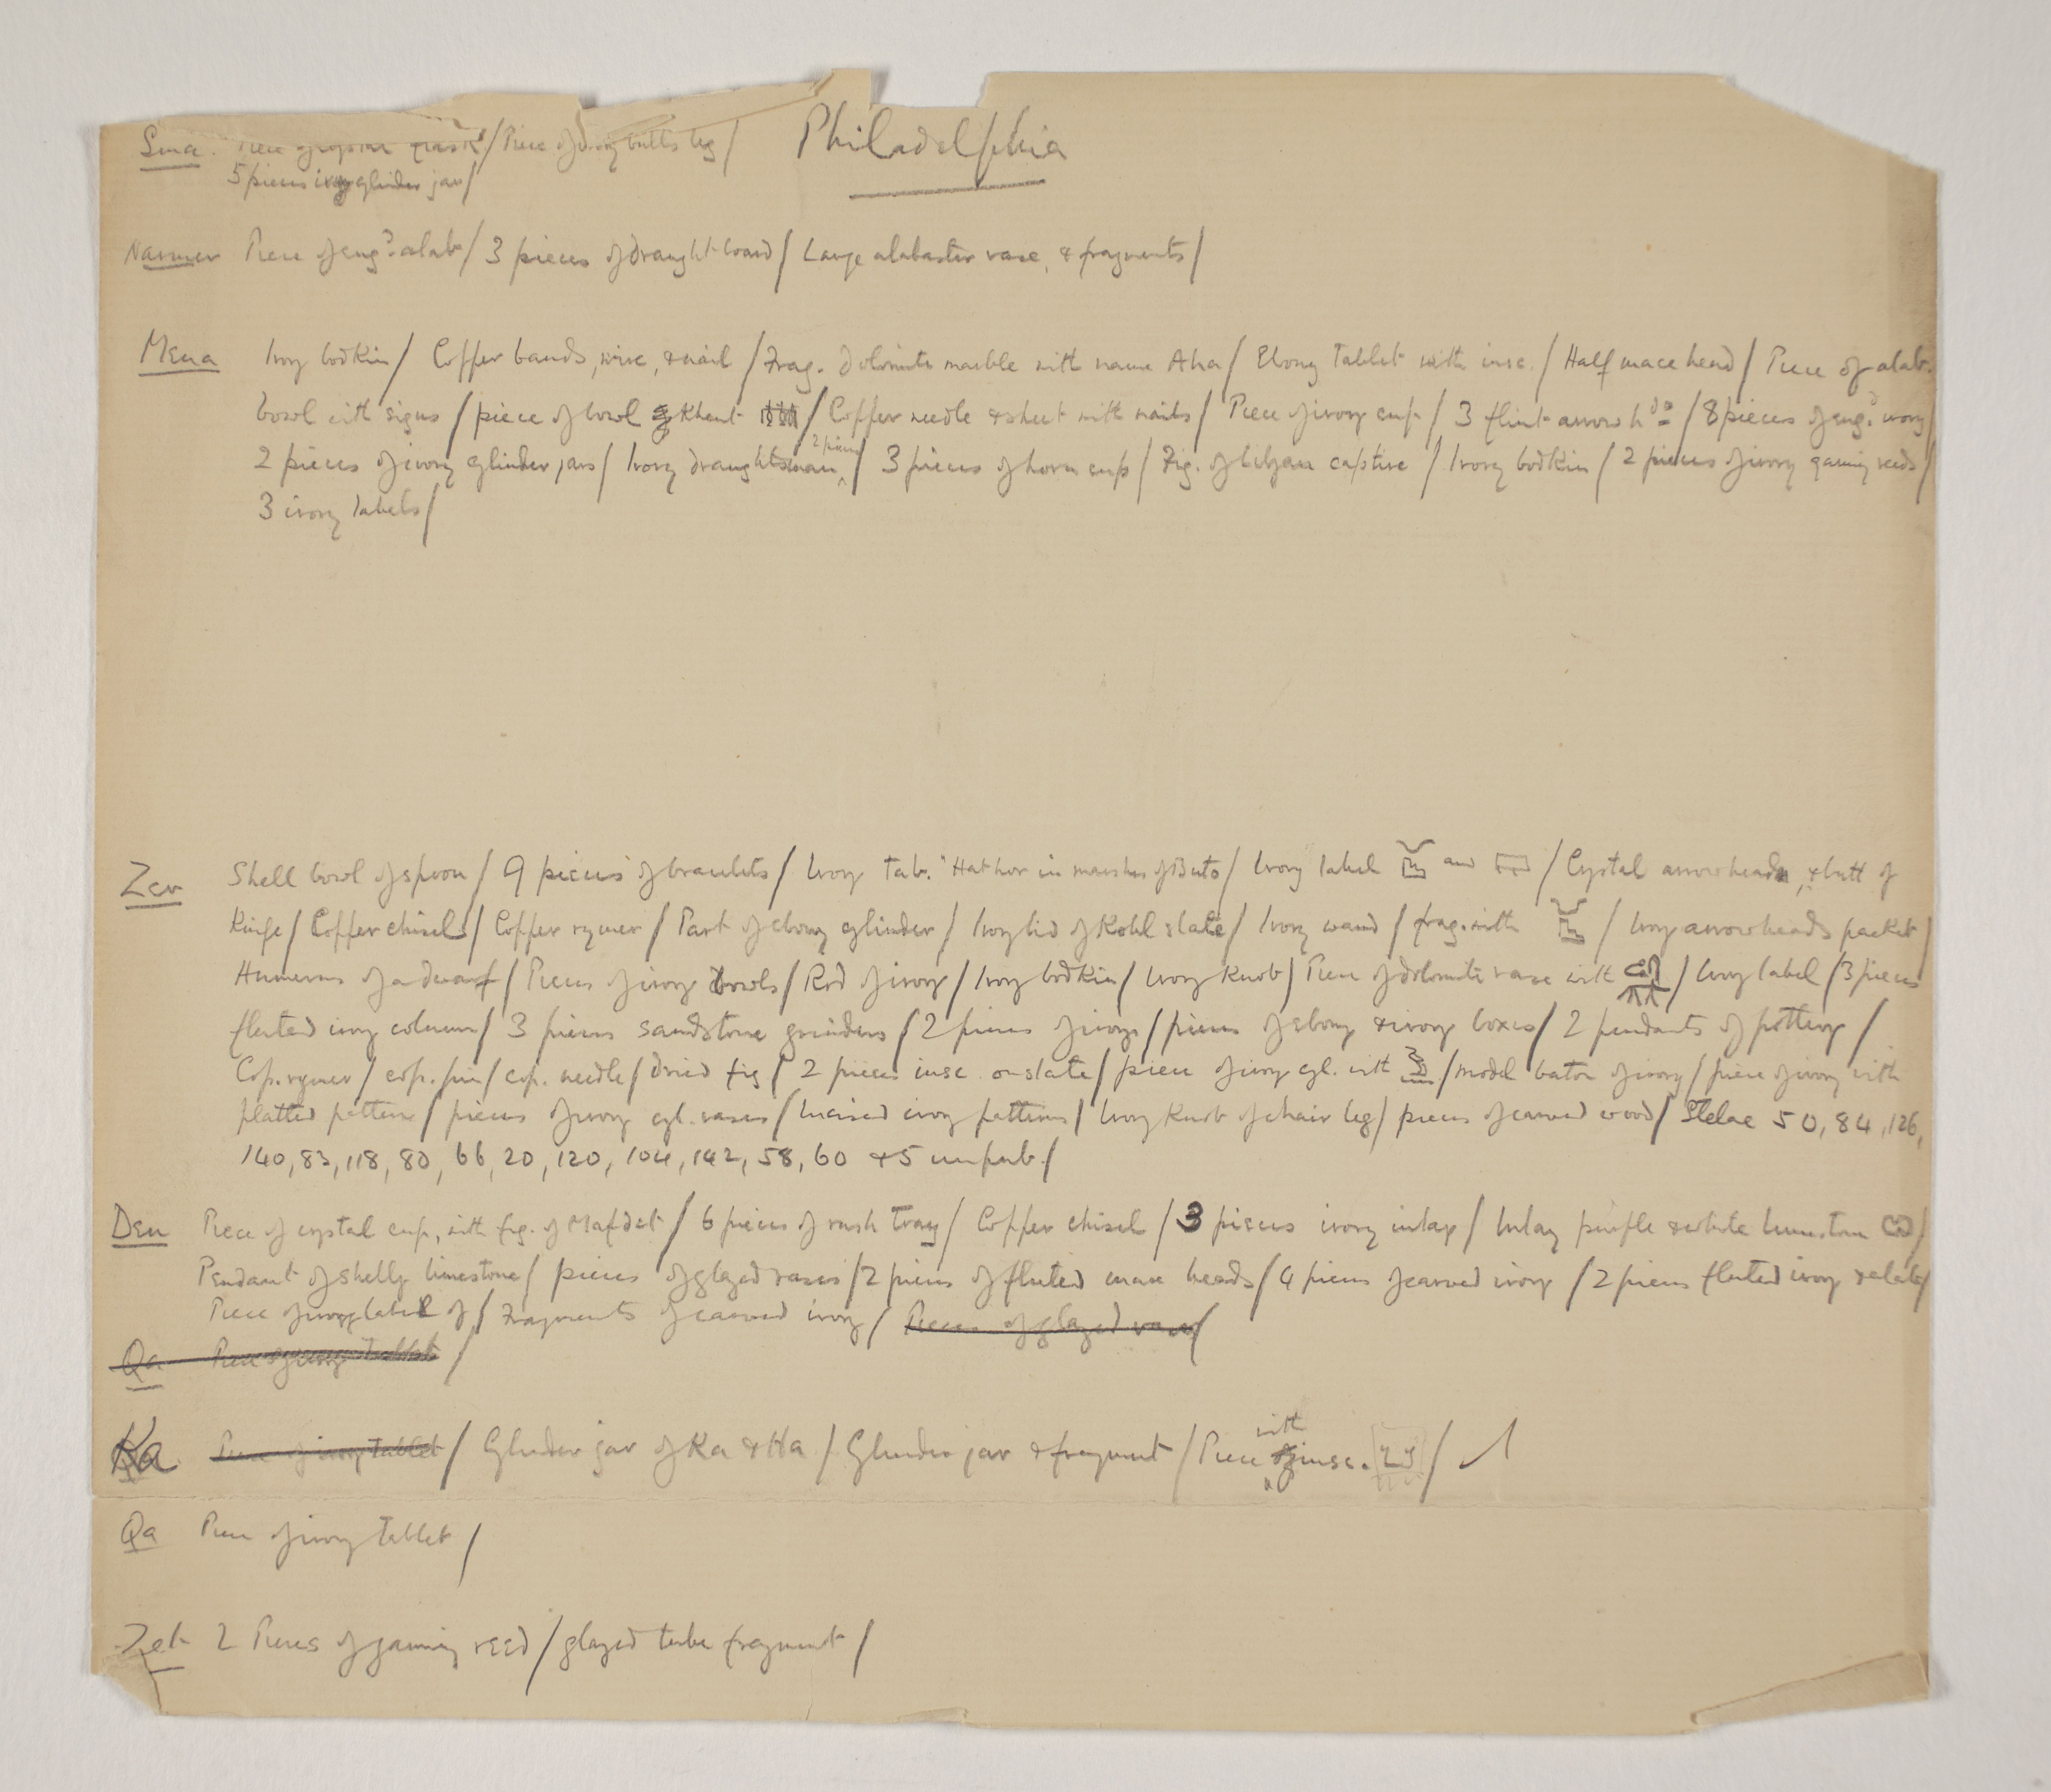 Philadelphia
Sma. Piece of crystal flask / Piece of ivory bull's leg /
5 pieces ivory cylinder jar /
Narmer Piece of engd. alab / 3 pieces of draught-board / Large alabaster vase, & fragments /
Mena Ivory bodkin / Copper bands, wire, & nail / Frag. dolomite marble with name Aha / Ebony tablet with insc. / Half mace head / Piece of alab.
bowl with signs / piece of bowl Khent / Copper needle & sheet with nails / Piece of ivory cup / 3 flint arrow hds / 8 pieces of engd. ivory /
2 pieces of ivory cylinder jars / Ivory draughtsman, 2 pieces / 3 pieces of horn cup / Fig. of Libyan captive / Ivory bodkin / 2 pieces of ivory gaming reeds /
3 ivory labels /
Zer Shell bowl of spoon / 9 pieces of bracelets / Ivory tab. "Hathor in marshes of Buto / Ivory label and / Crystal arrowhead, & butt of
knife / Copper chisels / Copper rymer / Part of ebony cylinder / Ivory lid of Kohl slate / Ivory wand / frag. with / Ivory arrowheads packet /
Humerus of a dwarf / Pieces of ivory bowls / Rod of ivory / Ivory bodkin / Ivory knob / Piece of dolomite vase with / Ivory label / 3 pieces
fluted ivory column / 3 pieces sandstone grinders / 2 pieces of ivory / pieces of ebony & ivory boxes / 2 pendants of pottery /
Cop. rymer / cop. pin / cop. needle / dried fig / 2 pieces insc. on slate / piece of ivory cyl. with / model baton of ivory / piece of ivory with
platted pattern / pieces of ivory cyl. vases / Incised ivory patterns / Ivory knob of chair leg / pieces of carved wood / Stelae 50, 84, 126,
140, 83, 118, 80, 66, 20, 120, 104, 142, 58, 60 & 5 unpub. /
Den Piece of crystal cup, with fig. of Mafdet / 6 pieces of rush tray / Copper chisel / 3 pieces ivory inlay / Inlay purple & white limestone /
Pendant of shelly limestone / pieces of glazed vases / 2 pieces of fluted mace heads / 4 pieces of carved ivory / 2 pieces fluted ivory & slate /
Piece of ivory label of / Fragments of carved ivory / Pieces of glazed vases /
Qa Piece of ivory tablet /
Ka Piece of ivory tablet / Cylinder jar of Ka & Ha / Cylinder jar & fragment / Piece with insc. /
Qa Piece of ivory tablet /
Zet 2 Pieces of gaming reed / glazed tube fragment /